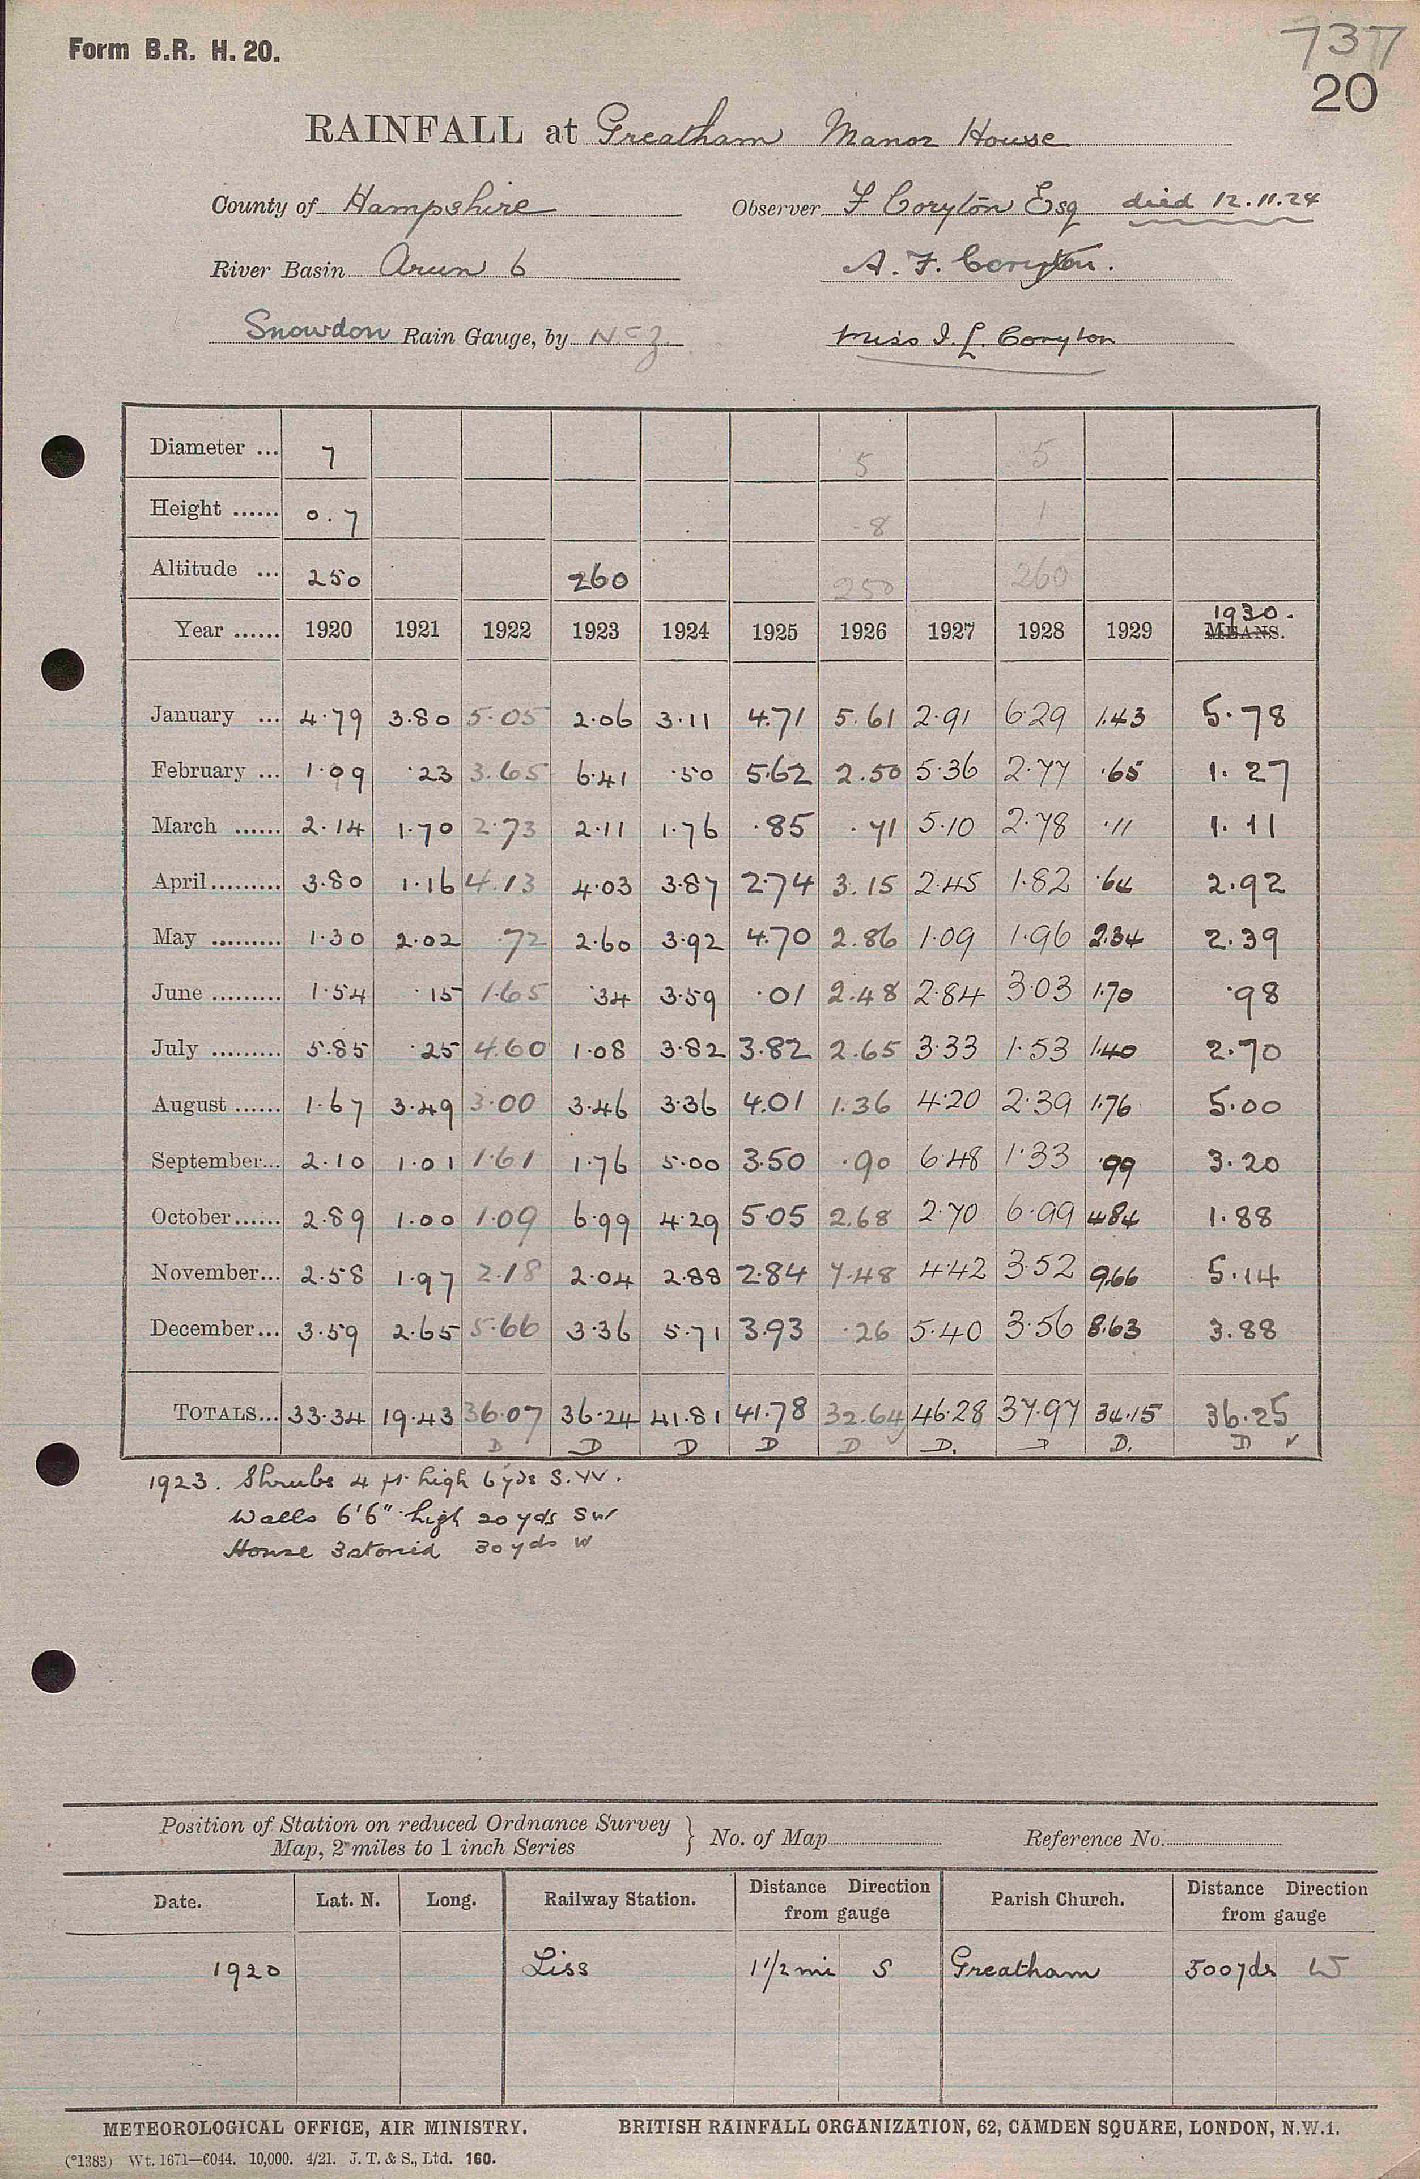 Form B.R. H. 20.
737
20
RAINFALL at Greatham Manor House
County of Hampshire Observer F Coryton Esq died 12.11.24
River Basin Arun 6 A. F. Coryton.
Snowdon Rain Gauge, by N & Z. Miss I. L. Coryton
Diameter ... 7 5 5
Height ...... 0.7 .8 1
Altitude ... 250 260 250 260
Year ...... 1920 1921 1922 1923 1924 1925 1926 1927 1928 1929 1930. MEANS.
January ... 4.79 3.80 5.05 2.06 3.11 4.71 5.61 2.91 6.29 1.43 5.78
February ... 1.09 .23 3.65 6.41 .50 5.62 2.50 5.36 2.77 .65 1.27
March ...... 2.14 1.70 2.73 2.11 1.76 .85 .71 5.10 2.78 .11 1.11
April......... 3.80 1.16 4.13 4.03 3.87 2.74 3.15 2.45 1.82 .64 2.92
May ......... 1.30 2.02 .72 2.60 3.92 4.70 2.86 1.09 1.96 2.34 2.39
June ......... 1.54 .15 1.65 .34 3.59 .01 2.48 2.84 3.03 1.70 .98
July ......... 5.85 .25 4.60 1.08 3.82 3.82 2.65 3.33 1.53 1.40 2.70
August ...... 1.67 3.49 3.00 3.46 3.36 4.01 1.36 4.20 2.39 1.76 5.00
September... 2.10 1.01 1.61 1.76 5.00 3.50 .90 6.48 1.33 .99 3.20
October...... 2.89 1.00 1.09 6.99 4.29 5.05 2.68 2.70 6.99 4.84 1.88
November... 2.58 1.97 2.18 2.04 2.88 2.84 7.48 4.42 3.52 9.66 5.14
December... 3.59 2.65 5.66 3.36 5.71 3.93 .26 5.40 3.56 8.63 3.88
TOTALS... 33.34 19.43 36.07 36.24 41.81 41.78 32.64 46.28 37.97 34.15 36.25
D D D D D ✓ D. D D. D ✓
1923. Shrubs 4 ft high 6 yds S.W.
Walls 6'6" high 20 yds SW
House 3 storied 30 yds W
Position of Station on reduced Ordnance Survey
Map, 2 miles to 1 inch Series } No. of Map Reference No.
Date. Lat. N. Long. Railway Station. Distance Direction from gauge Parish Church. Distance Direction from gauge
1920 Liss 1 1/2 mi S Greatham 500 yds W
METEOROLOGICAL OFFICE, AIR MINISTRY. BRITISH RAINFALL ORGANIZATION, 62, CAMDEN SQUARE, LONDON, N.W.1.
(*1383) Wt. 1671—6044. 10,000. 4/21. J. T. & S., Ltd. 160.